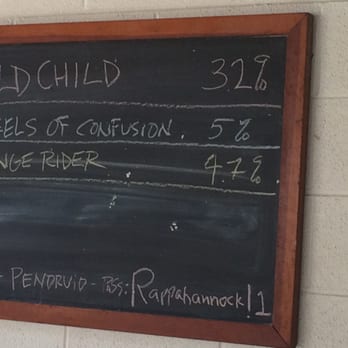 LD CHILD 3.2%
EELS OF CONFUSION. 5%
NGE RIDER 4.7%
- PENDRUID - PASS: Rappahannock!1